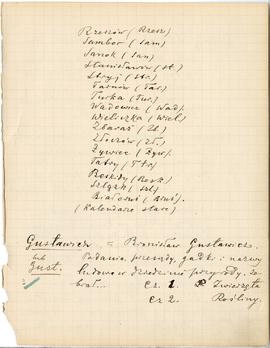 Rzeszów (Rzesz)
Sambor (Sam)
Sanok (San)
Stanisławów (St.)
Stryj (Str.)
Tarnów (Tar.)
Turka (Tur.)
Wadowice (Wad).
Wieliczka (Wiel)
Zbaraż (Zb)
Złoczów (Zł.)
Żywiec (Żyw).
Tatry (Ttr.)
Beskidy (Besk)
Szląsk (szl)
(Kalendarze stare)
Gustawicz = Bronisław Gustawicz.
lub Podania, przesądy, gadki i nazwy
Gust. ludowe w dziedzinie przyrody. ze-
brał... Cz. 1. Zwierzęta
Cz 2. Rośliny.